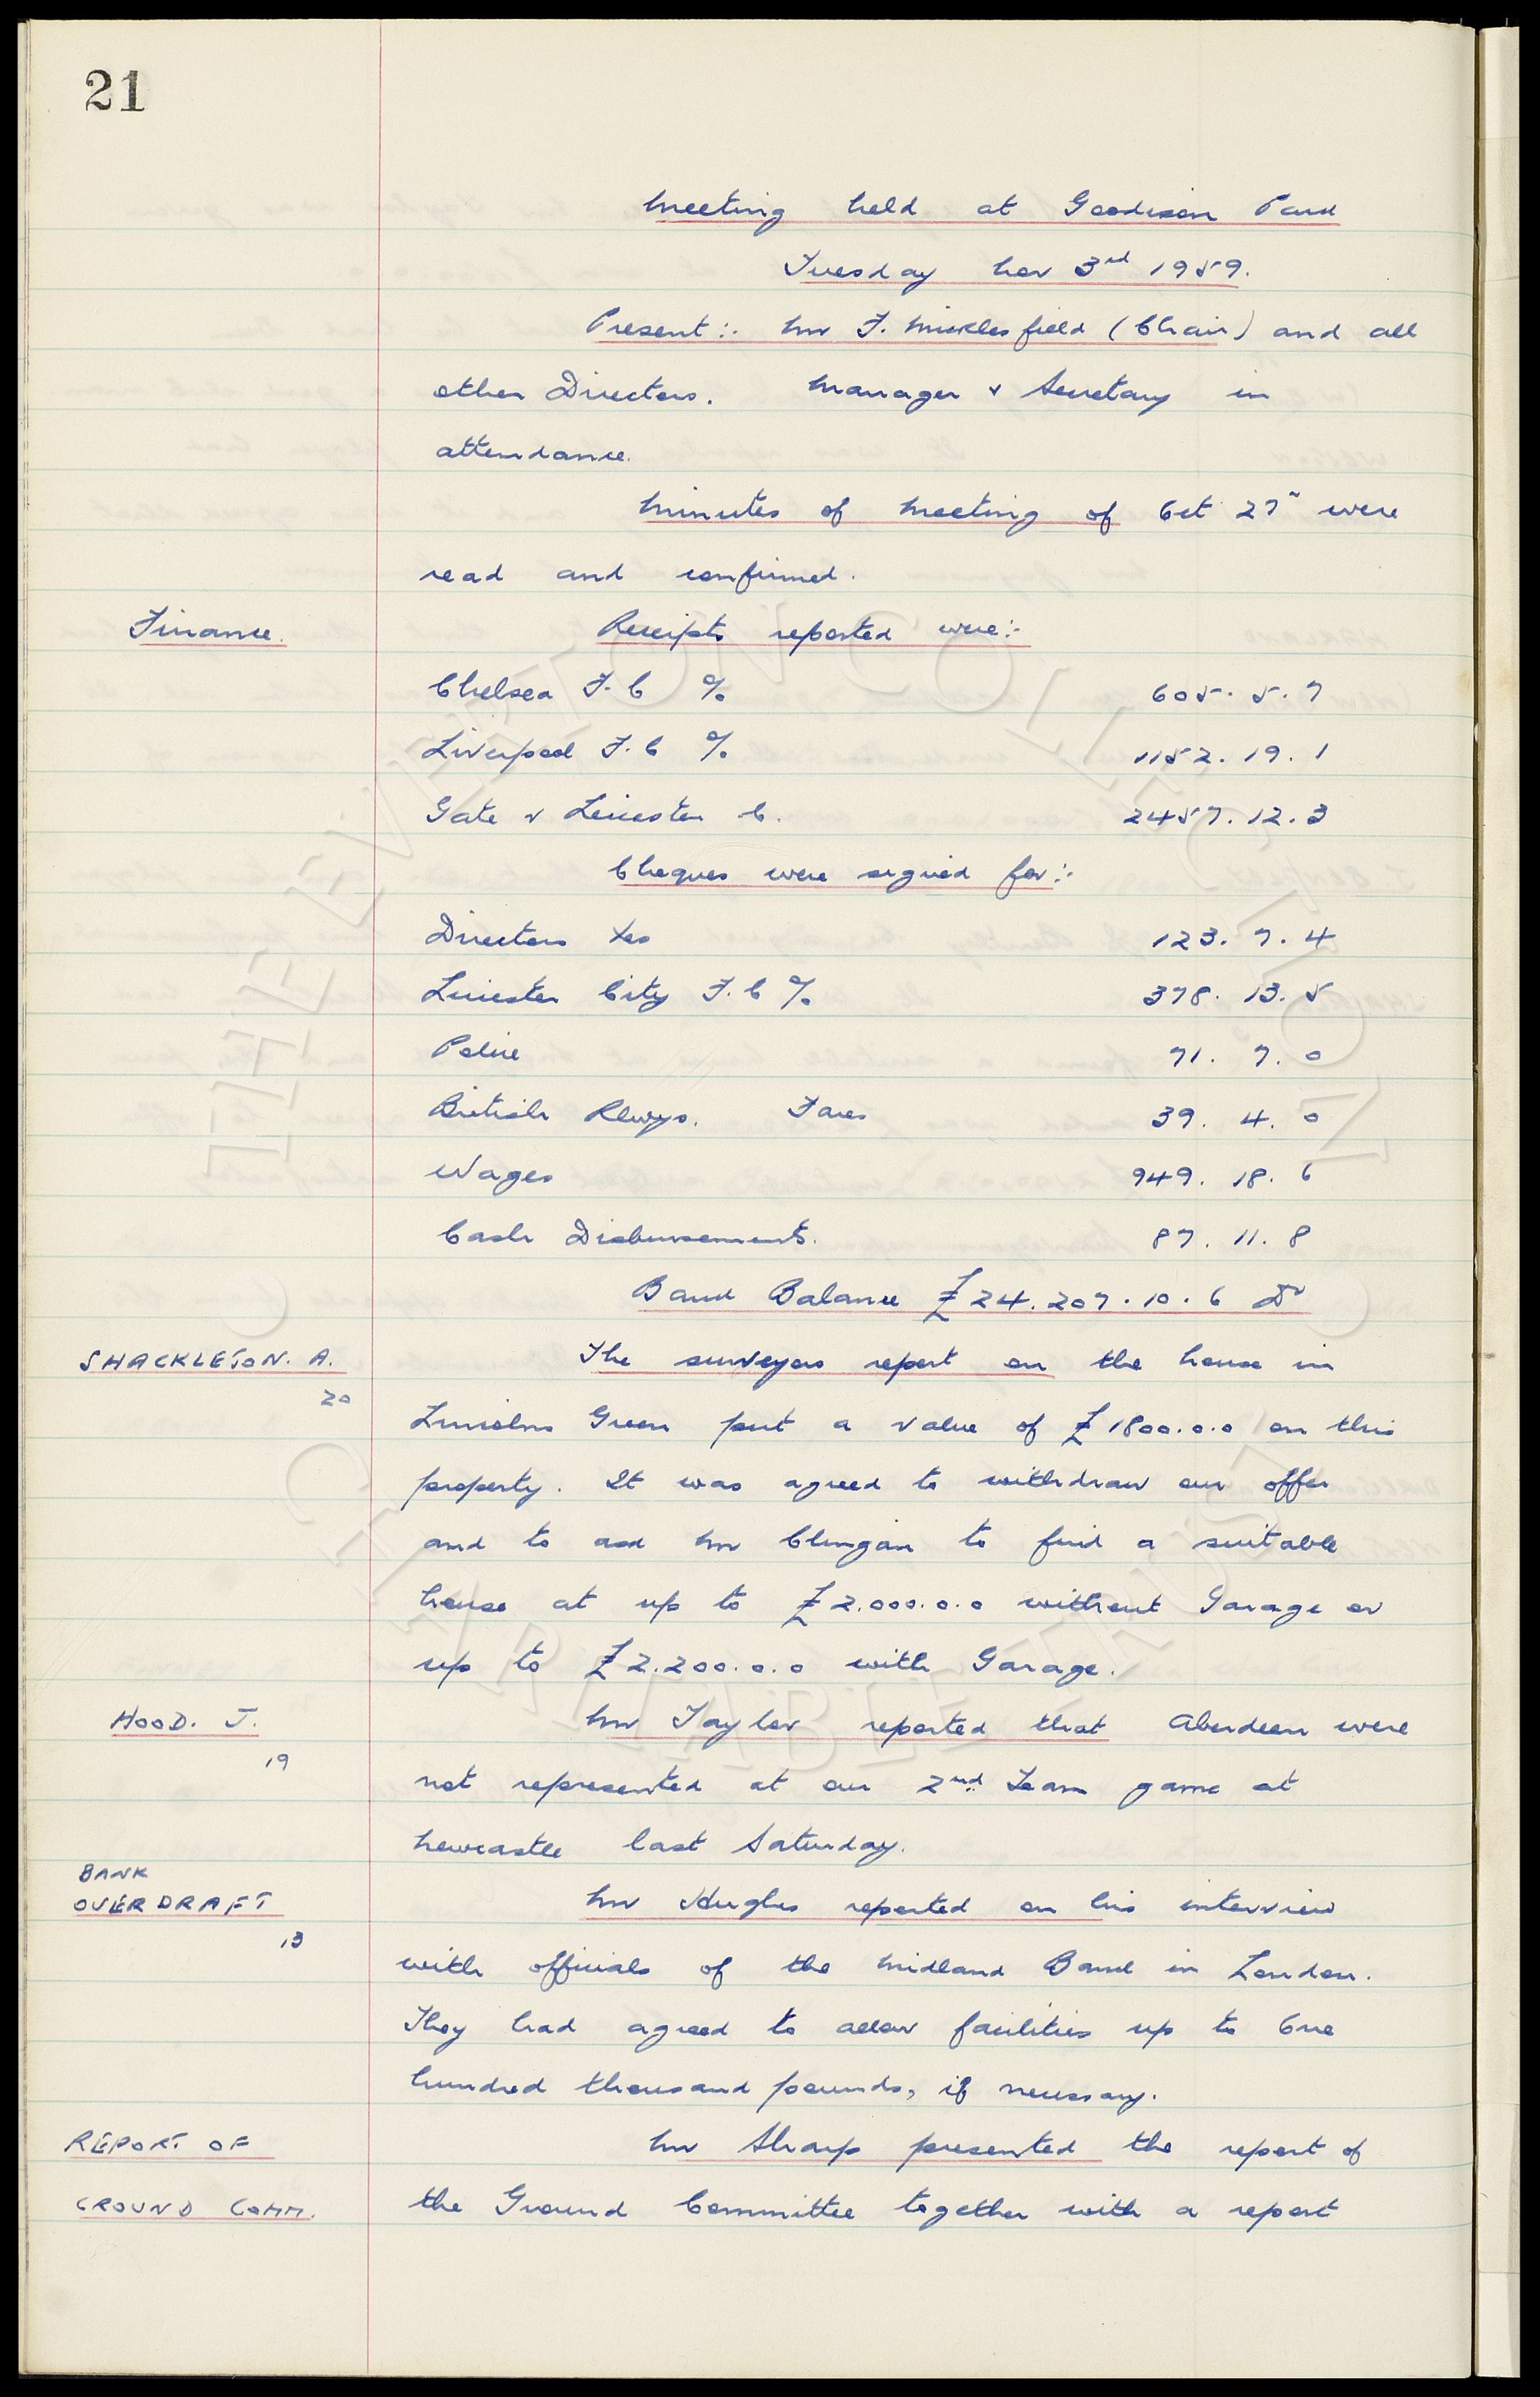 21
Meeting held at Goodison Park
Tuesday Nov 3rd 1959.
Present:- Mr F. Micklesfield (Chair) and all
other Directors. Manager & Secretary in
attendance.
Minutes of Meeting of Oct 27" were
read and confirmed.
Finance. Receipts reported were:-
Chelsea F. C % 605. 5. 7
Liverpool F. C % 1152. 19. 1
Gate v Leicester C. 2457. 12. 3
Cheques were signed for:-
Directors Xes 123. 7. 4
Leicester City F. C % 378. 13. 5
Police 71. 7. 0
British Rlwys. Fares 39. 4. 0
Wages 949. 18. 6
Cash Disbursements. 87. 11. 8
Bank Balance £24.207.10.6 Dr
SHACKLETON. A. The surveyors report on the house in
20
Lincolns Green put a value of £1800.0.0 on this
property. It was agreed to withdraw our offer
and to ask Mr Clingan to find a suitable
house at up to £2.000.0.0 without Garage or
up to £2.200.0.0 with Garage.
HOOD. J. Mr Taylor reported that Aberdeen were
19
not represented at our 2nd Team game at
Newcastle last Saturday.
BANK
OVERDRAFT Mr Hughes reported on his interview
13
with officials of the Midland Bank in London.
They had agreed to allow facilities up to One
hundred thousand pounds, if necessary.
REPORT OF Mr Sharp presented the report of
GROUND COMM. the Ground Committee together with a report
THE EVERTON COLLECTION
CHARITABLE TRUST